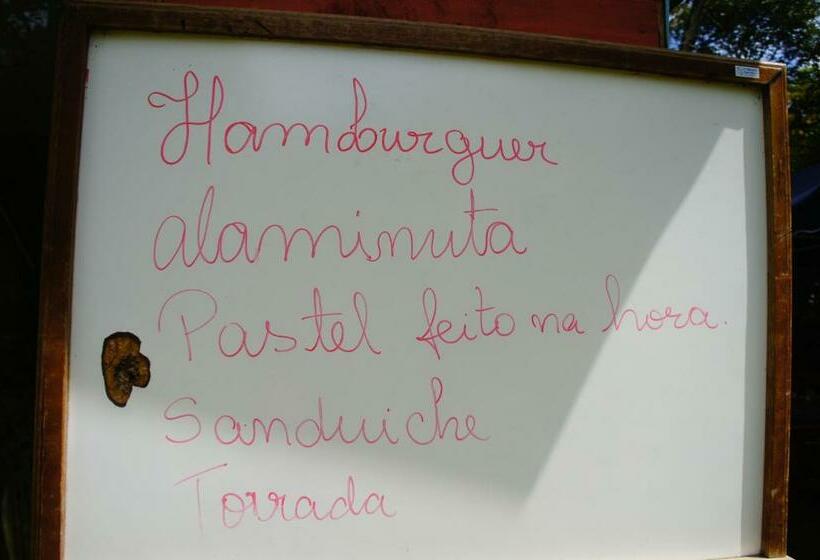 Hamburguer
alaminuta
Pastel feito na hora.
Sanduiche
Torrada